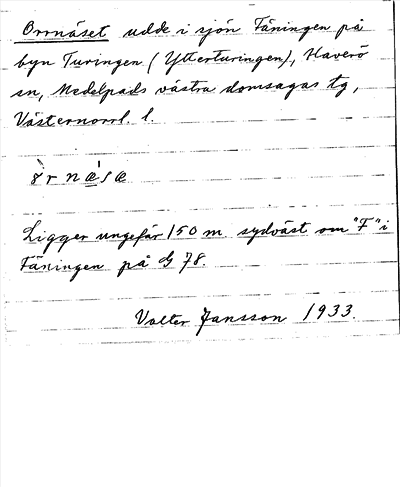 Orrnäset udde i sjön Täningen på
byn Turingen (Ytterturingen), Haverö
sn, Medelpads västra domsagas tg,
Västernorrl. l.
Ligger ungefär 150 m sydväst om "F" i
Täningen på G 78.
Valter Jansson 1933.